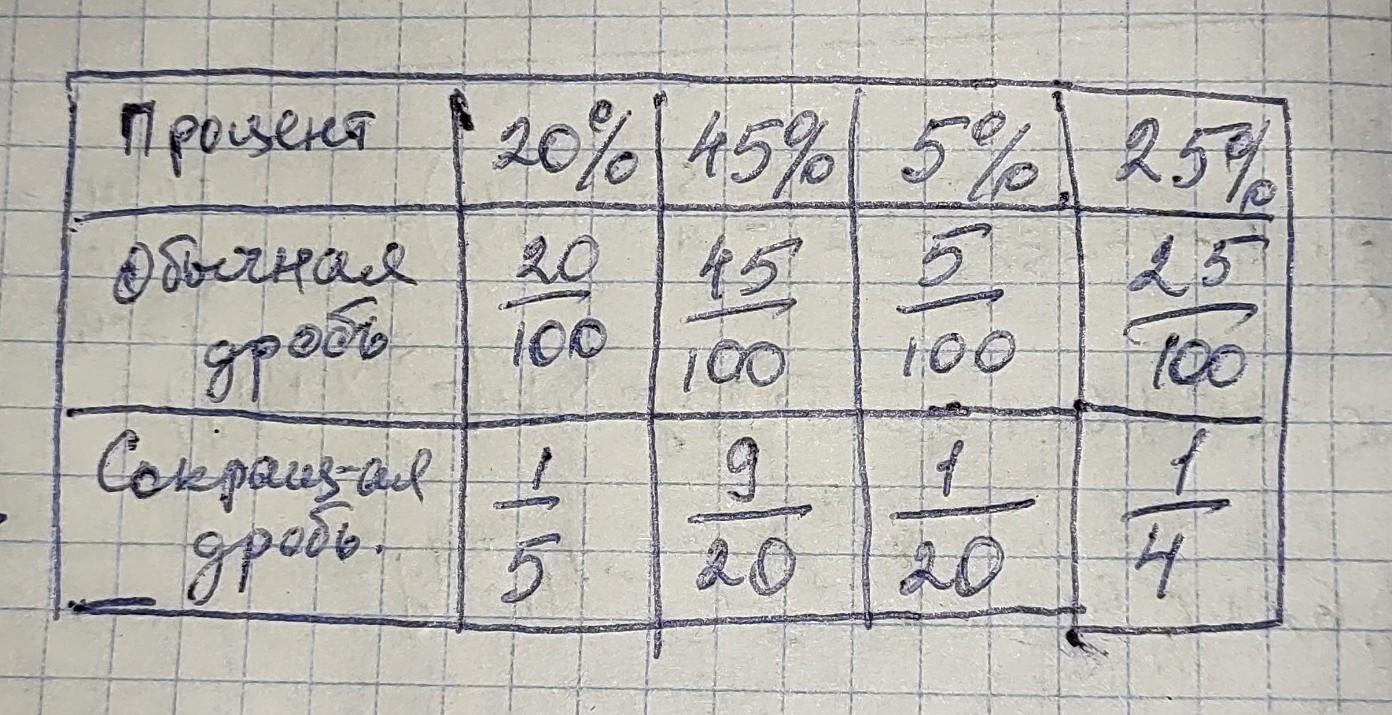 Процент 20% 45% 5% 25%
Обычная дробь 20/100 45/100 5/100 25/100
Сокращ-ая дробь. 1/5 9/20 1/20 1/4